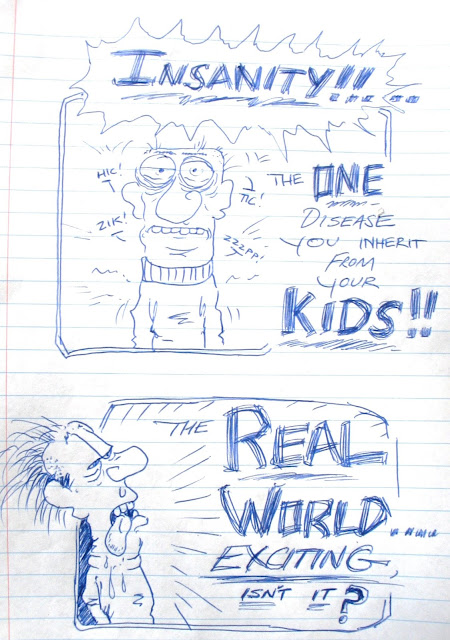 INSANITY!!....
HIC!
TIC!
ZIK!
ZZZPP!
THE ONE
DISEASE
YOU INHERIT
FROM
YOUR
KIDS!!
THE REAL
WORLD....
EXCITING,
ISN'T IT?